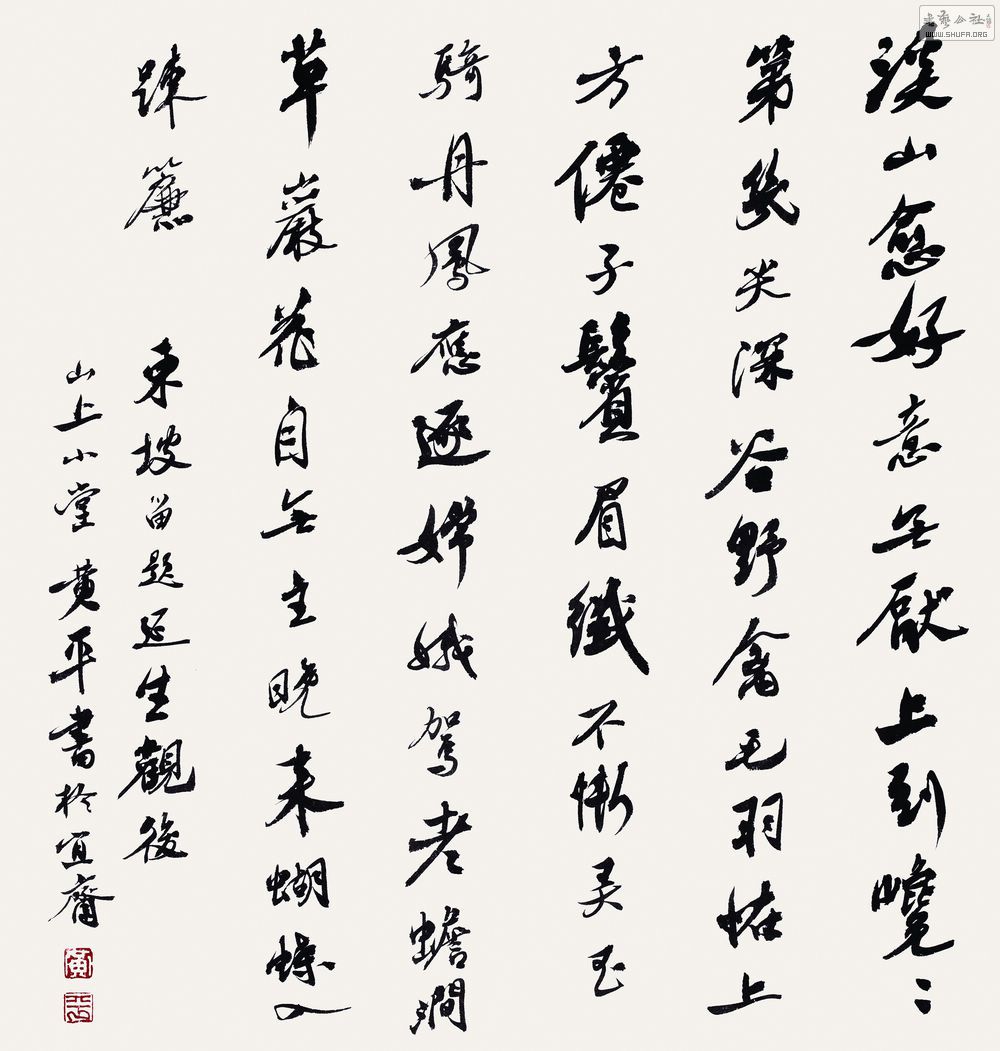 溪山愈好意無厭上到巉〻
第幾尖深谷野禽毛羽恠上
方僊子鬢眉纖不慚弄玉
騎丹鳳應逐嫦娥駕老蟾澗
草巖花自無主晚来蝴蝶入
踈簾
東坡留題延生觀後
山上小堂黃平書於宜齋
黃
平
書藝公社
WWW.SHUFA.ORG